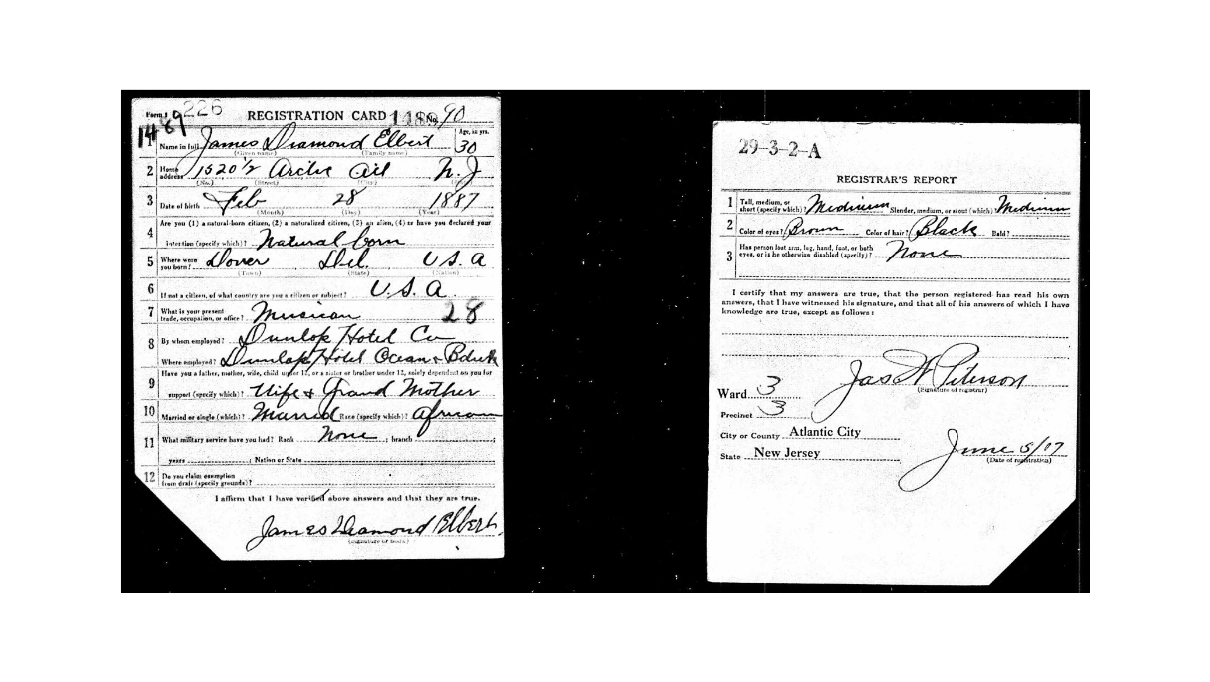 Form 1 226 REGISTRATION CARD No. 90
1489
1 Name in full James Diamond Elbert Age, in yrs. 30
(Given name) (Family name)
2 Home address 1520 1/2 Arctic Atl N.J
(No.) (Street) (City)
3 Date of birth Feb 28 1887
(Month) (Day) (Year)
4 Are you (1) a natural-born citizen, (2) a naturalized citizen, (3) an alien, (4) or have you declared your
intention (specify which)? Natural born
5 Where were you born? Dover Del. U.S.A
(Town) (State) (Nation)
6 If not a citizen, of what country are you a citizen or subject? U.S.A.
7 What is your present trade, occupation, or office? Musician 28
8 By whom employed? Dunlop Hotel Co
Where employed? Dunlop Hotel Ocean + Bdwk
9 Have you a father, mother, wife, child under 12, or a sister or brother under 12, solely dependent on you for
support (specify which)? Wife + Grand Mother
10 Married or single (which)? Married Race (specify which)? African
11 What military service have you had? Rank None ; branch ;
years ; Nation or State
12 Do you claim exemption from draft (specify grounds)?
I affirm that I have verified above answers and that they are true.
James Diamond Elbert
29-3-2-A
REGISTRAR'S REPORT
1 Tall, medium, or short (specify which)? Medium Slender, medium, or stout (which)? Medium
2 Color of eyes? Brown Color of hair? Black Bald?
3 Has person lost arm, leg, hand, foot, or both
eyes, or is he otherwise disabled (specify)? None
I certify that my answers are true, that the person registered has read his own
answers, that I have witnessed his signature, and that all of his answers of which I have
knowledge are true, except as follows:
Jas W Peterson
(Signature of registrar)
Ward 3
Precinct 3
City or County Atlantic City
State New Jersey
June 5/17
(Date of registration)